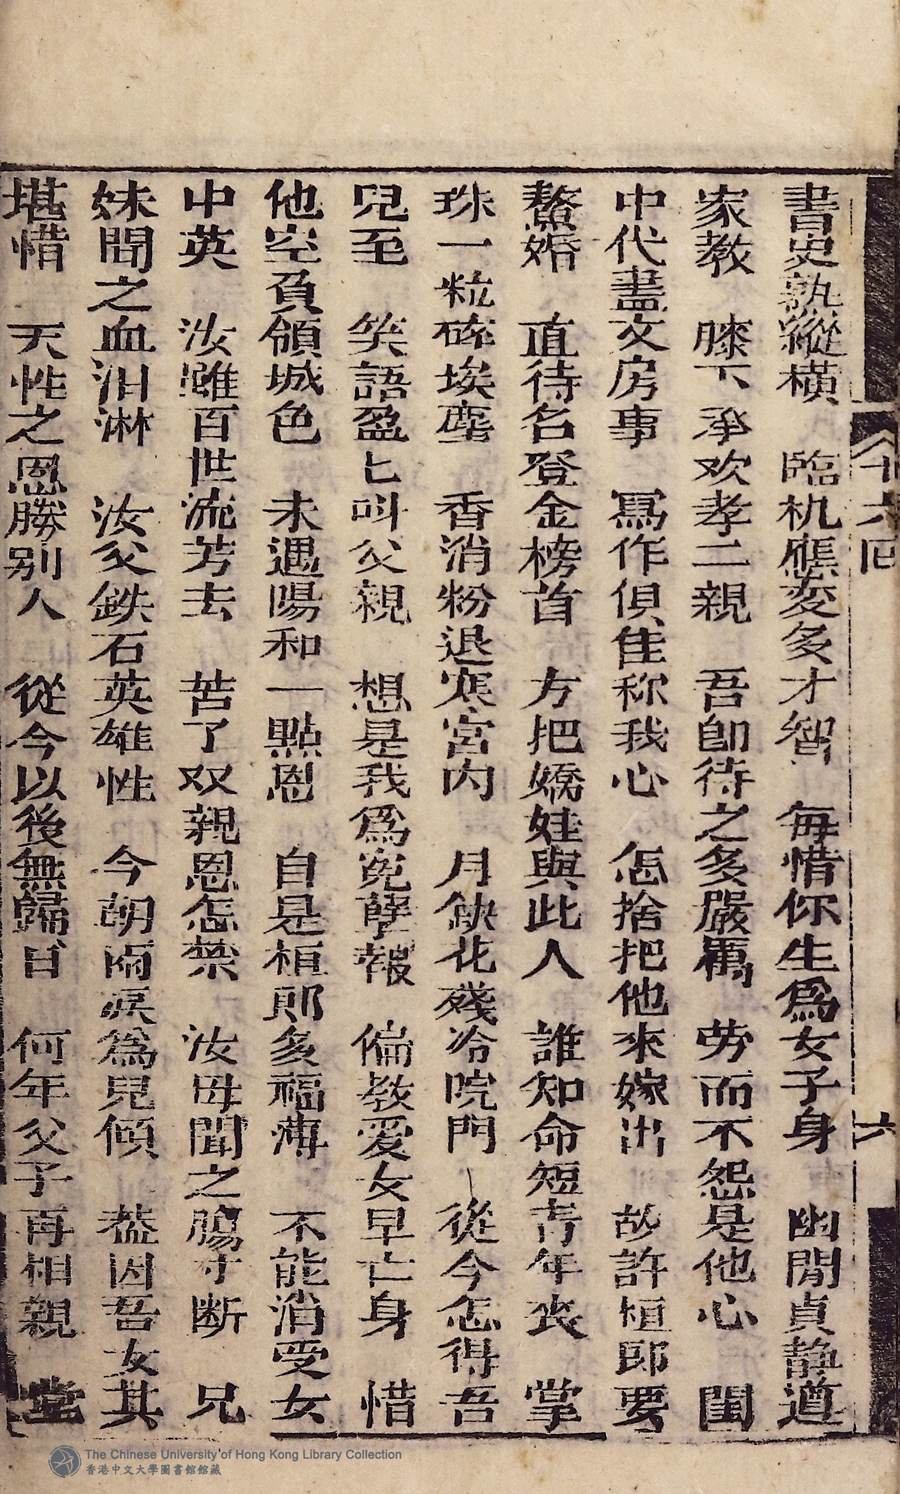 十六回
六
書史熟縱橫　臨机應变多才智　每惜你生為女子身　幽閒貞静遵
家教　膝下承欢孝二親　吾卽待之多嚴厲　劳而不怨是他心　閨
中代盡文房事　寫作俱佳称我心　怎捨把他來嫁出　故許桓郎要
贅婚　直待名登金榜首　方把嬌娃與此人　誰知命短青年丧　掌
珠一粒碎埃塵　香消粉退寒宮内　月缺花殘冷院門　從今怎得吾
兒至　笑語盈匕叫父親　想是我為冤孽報　偏教爱女早亡身　惜
他空負傾城色　未遇陽和一點恩　自是桓郎多福薄　不能消受女
中英　汝雖百世流芳去　苦了双親恩怎禁　汝母聞之腸寸断　兄
妹聞之血泪淋　汝父鉄石英雄性　今朝雨淚為兒傾　葢因吾女其
堪惜　天性之恩勝别人　從今以後無歸日　何年父子再相親　堂
The Chinese University of Hong Kong Library Collection
香港中文大學圖書館館藏